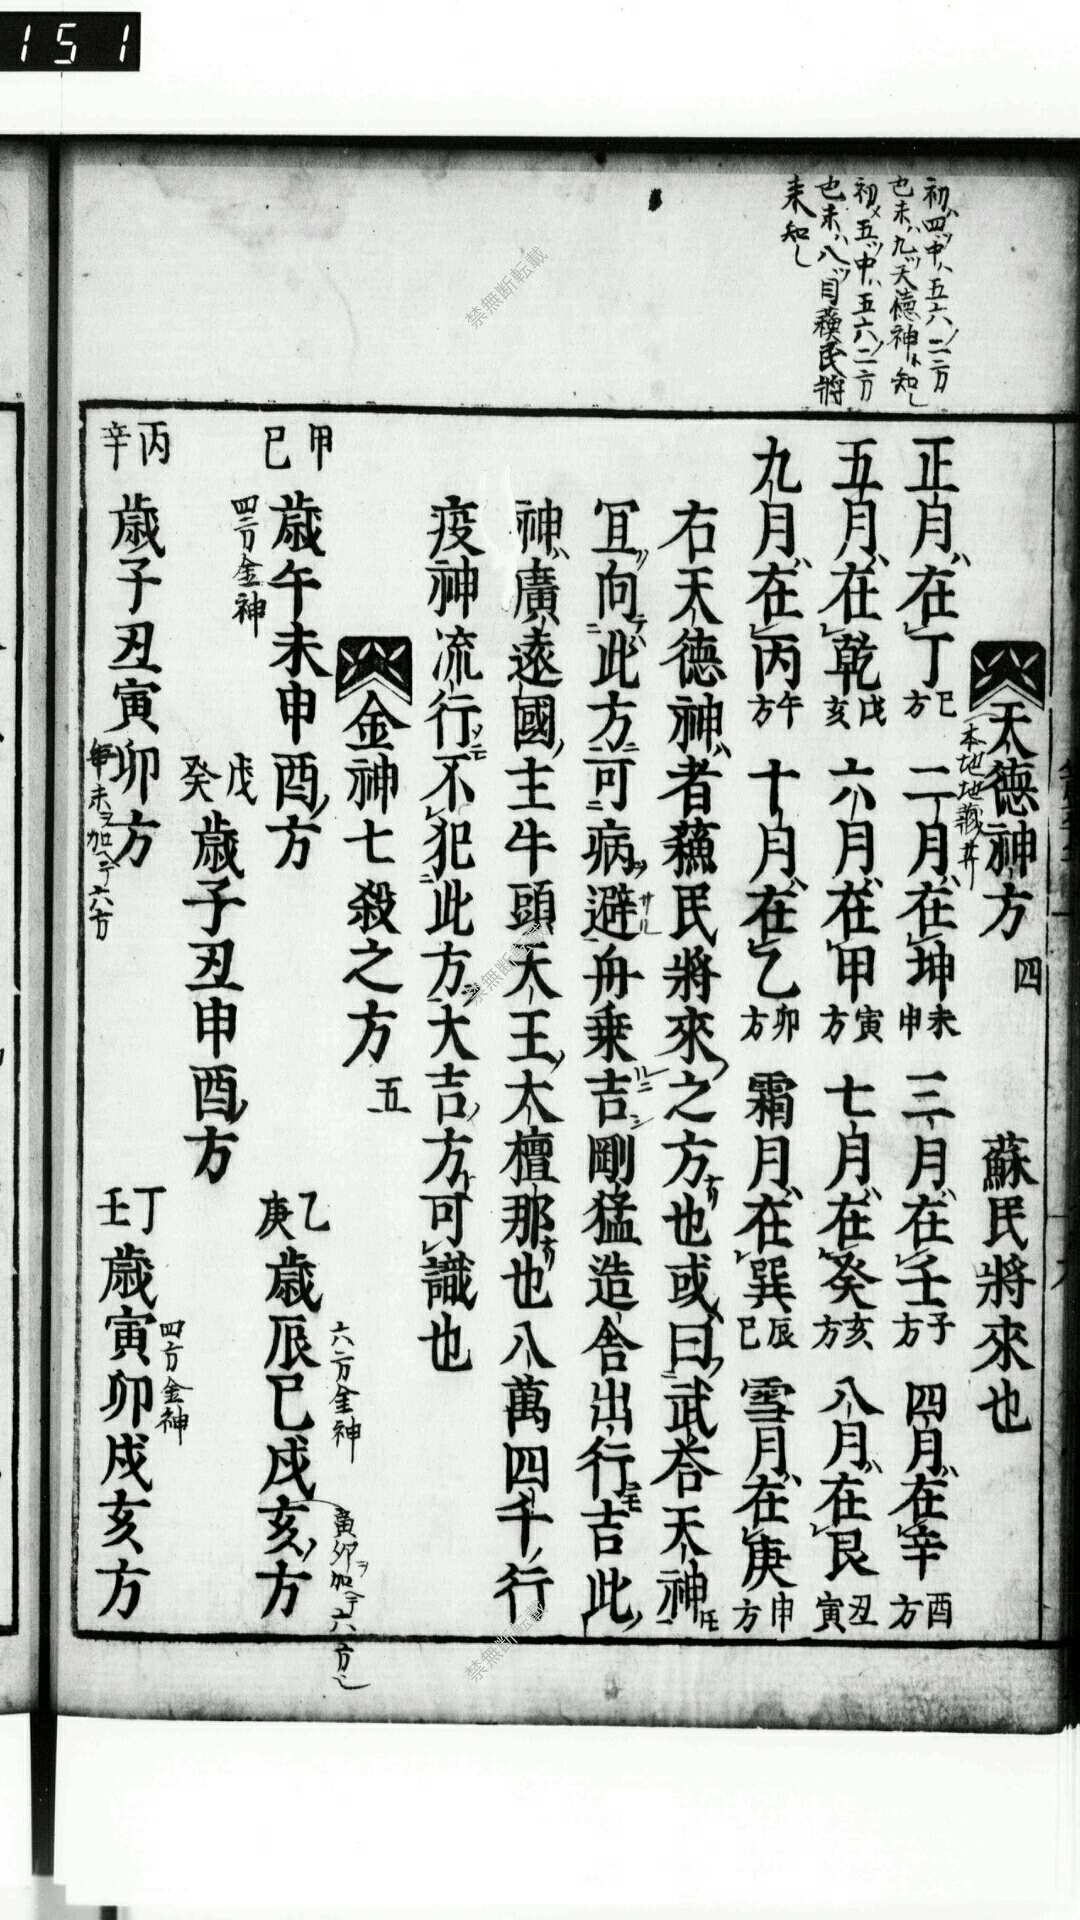 151
初ハ四ツ中ハ五六ノ二方
也末ハ九ツ天德神ト知レ
初メ五ツ中ハ五六ノ二方
也末ハ八ツ目蘓民將
来知レ
天德神方 四 蘇民將來也
本地地藏井
正月ハ在丁 巳方 二月ハ在坤 未申 三月ハ在壬 子方 四月ハ在辛 酉方
五月ハ在乾 戌亥 六月ハ在甲 寅方 七月ハ在癸 亥方 八月ハ在艮 丑寅
九月ハ在丙 午方 十月ハ在乙 卯方 霜月ハ在巽 辰巳 雪月ハ在庚 申方
右天德神ハ者蘓民將來之方也或曰武荅天神
冝向此方可病避舟乗吉剛猛造舎出行吉此
神廣遠國主牛頭天王大檀那也八萬四千行
疫神流行不犯此方大吉方可識也
金神七殺之方 五
甲巳 歳午未申酉方 乙庚 歳辰巳戌亥方
四方金神
六方金神
寅卯ヲ加ヘテ六方也
戊癸 歳子丑申酉方
丙辛 歳子丑寅卯方 丁壬 歳寅卯戌亥方
午未ヲ加ヘテ六方
四方金神
禁無断転載
禁無断転載
禁無断転載